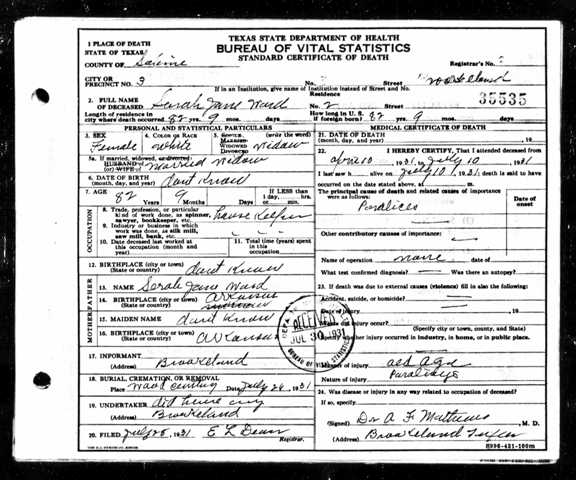 TEXAS STATE DEPARTMENT OF HEALTH
BUREAU OF VITAL STATISTICS
STANDARD CERTIFICATE OF DEATH
1 PLACE OF DEATH
STATE OF TEXAS
COUNTY OF Sabine Registrar's No.
CITY OR
PRECINCT NO. 3 No. Street
If in an Institution, give name of Institution instead of Street and No.
2. FULL NAME OF DECEASED Sarah Jane Ward Residence No. 2 Street 35535
Length of residence in city where death occurred 82 yrs. 9 mos. How long in U. S. if foreign born? 82 yrs. 9 mos.
PERSONAL AND STATISTICAL PARTICULARS
3. SEX Female
4. COLOR OR RACE white
5. SINGLE MARRIED WIDOWED DIVORCED (write the word) Widow
5a. If married, widowed, or divorced:
HUSBAND of (or) WIFE of Married Widow
6. DATE OF BIRTH (month, day, and year) dont Know
7. AGE 82 YEARS 9 Months If LESS than 1 day, hrs. or min.
OCCUPATION
8. Trade, profession, or particular kind of work done, as spinner, sawyer, bookkeeper, etc. house Keeper
9. Industry or business in which work was done, as silk mill, saw mill, bank, etc.
10. Date deceased last worked at this occupation (month and year)
11. Total time (years) spent in this occupation
12. BIRTHPLACE (city or town) (State or country) dont Know
MOTHER/FATHER
13. NAME Sarah Jane Ward
14. BIRTHPLACE (city or town) (State or country) Arkansas
15. MAIDEN NAME dont Know
16. BIRTHPLACE (city or town) (State or country) Arkansas
17. INFORMANT (Address) Brookeland
18. BURIAL, CREMATION, OR REMOVAL
Place Date July 28 1931
19. UNDERTAKER (Address) Brookeland
20. FILED 1931 E L Registrar.
MEDICAL CERTIFICATE OF DEATH
21. DATE OF DEATH (month, day, and year)
22. I HEREBY CERTIFY, That I attended deceased from
10 1931, July 10 1931
I last saw h alive on July 10 1931 death is said to have occurred on the date stated above, at m.
The principal cause of death and related causes of importance were as follows: Date of onset
Other contributory causes of importance:
Name of operation none date of
What test confirmed diagnosis? Was there an autopsy?
23. If death was due to external causes (violence) fill in also the following:
Accident, suicide, or homicide?
(Specify city or town, county, and State)
Manner of injury old Age
Nature of injury
24. Was disease or injury in any way related to occupation of deceased?
If so, specify
(Signed) Dr A. F. Matthews M. D.
(Address) Brookeland Texas
RECEIVED
JUL 30 1931
BUREAU OF VITAL STATISTICS